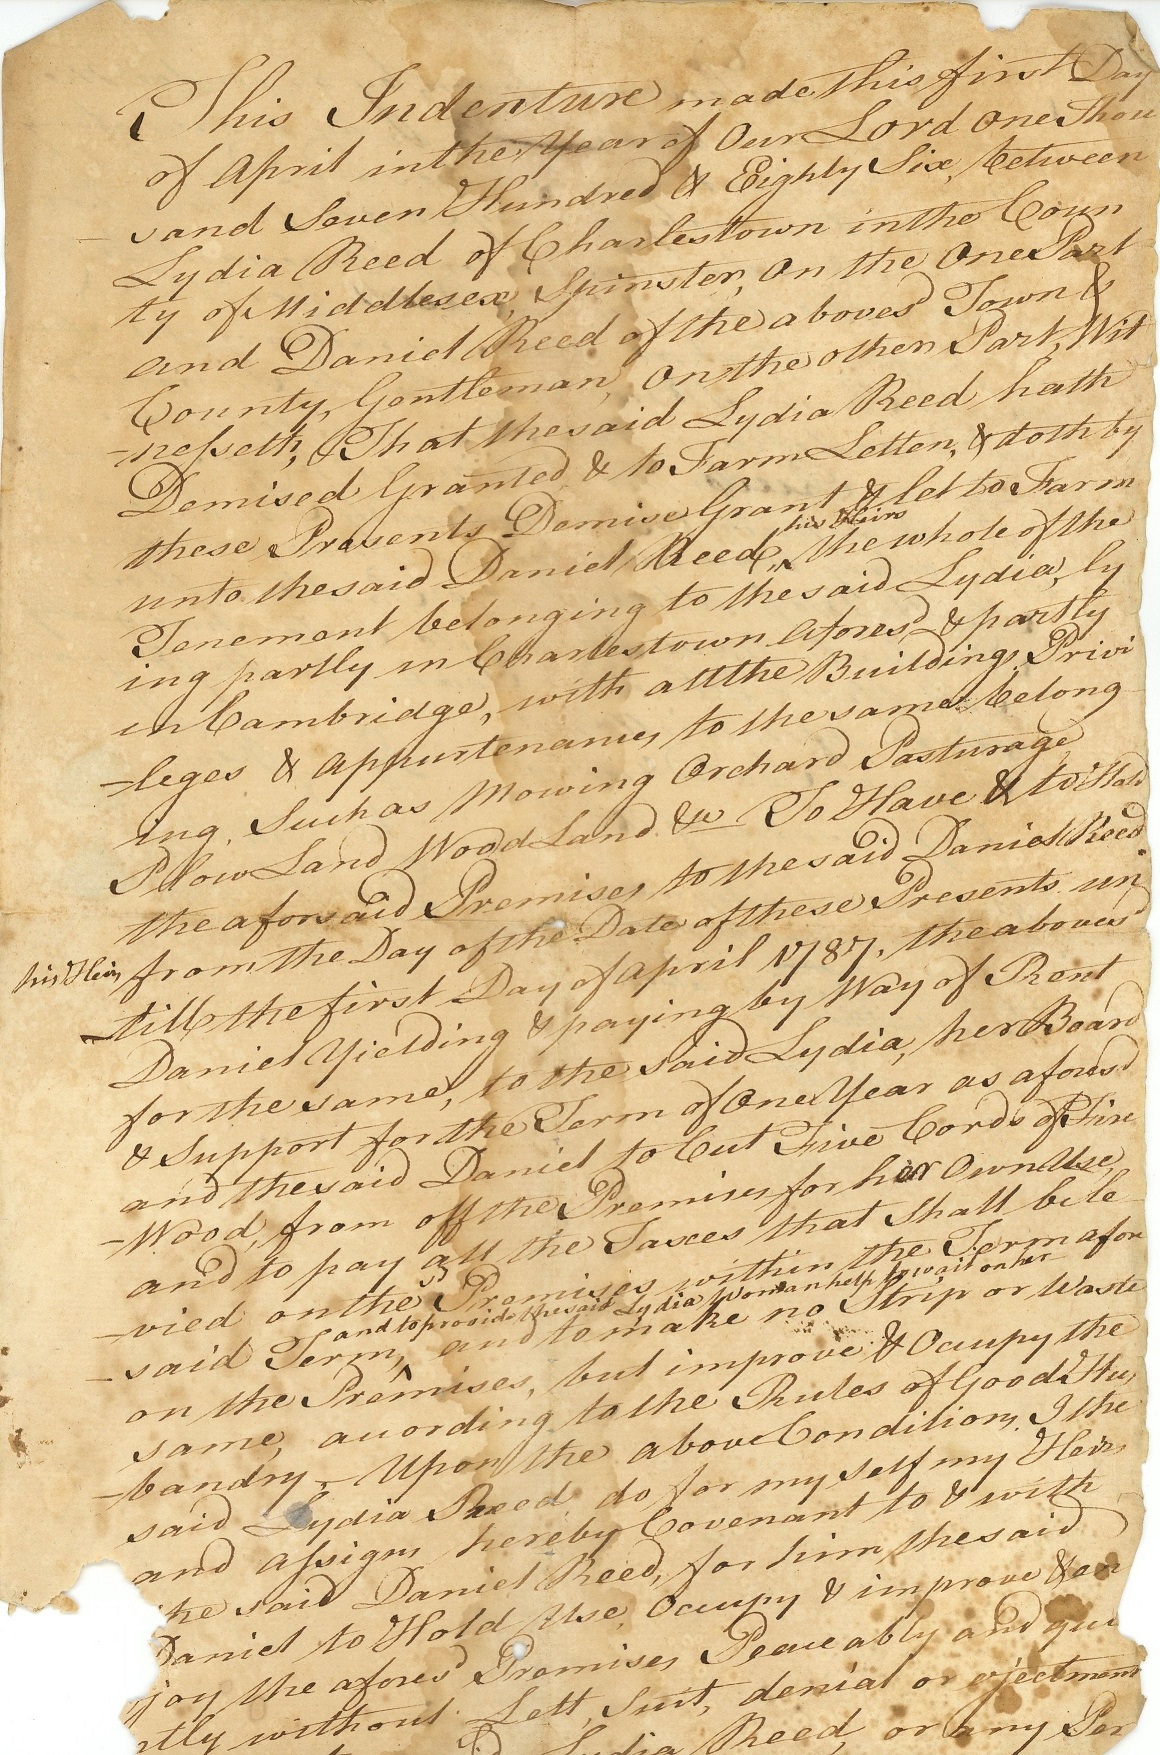 This Indenture made this first Day
of April in the Year of Our Lord One Thou
sand Seven Hundred & Eighty Six, between
Lydia Reed of Charlestown in the Coun
ty of Middlesex, Spinster, On the One Part
and Daniel Reed of the abovesd Town &
County, Gentleman, On the other Part, Wit
-nesseth, That the said Lydia Reed hath
Demised Granted, & to Farm Letten, & doth by
these Presents Demise Grant & let to Farm
his Heirs
unto the said Daniel Reed, ^ the whole of the
Tenement belonging to the said Lydia, ly
ing partly in Charlestown aforesd & partly
in Cambridge, with all the Buildings Privi
-leges & Appurtenances to the same belong
ing. Such as Mowing Orchard Pasturage
Plow Land Wood Land &c To Have & to Hold
the aforesaid Premises to the said Daniel Reed
his Heirs from the Day of the Date of these Presents un
-till the first Day of April 1787, the abovesd
Daniel Yielding & paying by Way of Rent
for the same, to the said Lydia, her Board
& Support for the Term of One Year as aforesd
and the said Daniel to Cut Five Cords of Fire
-Wood, from off the Premises for her Own Use,
and to pay all the Taxes that Shall be le
-vied on the Premises within the Term afor
and to provide the said Lydia Woman help to wait on her
-said Term, ^ and to make no Strip or Waste
on the Premises, but improve & Occupy the
same, according to the Rules of Good Hus
-bandry,- Upon the above Conditions, I the
said Lydia Reed do for my self my Heirs
and assigns hereby Covenant to & with
the said Daniel Reed, for him the said
Daniel to Hold Use Occupy & improve & en
joy the aforesd Premises Peaceably and qui
etly without Lett, Suit, denial or ejectment
Lydia Reed, or any Per